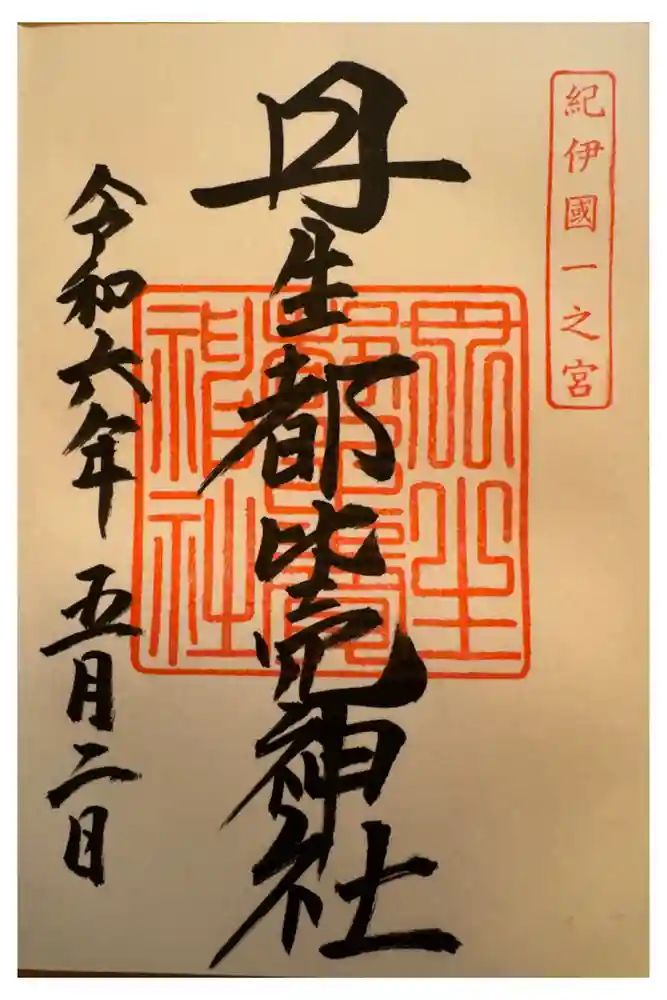 紀伊國一之宮
丹生都比売神社
丹生
神社
令和六年 五月二日